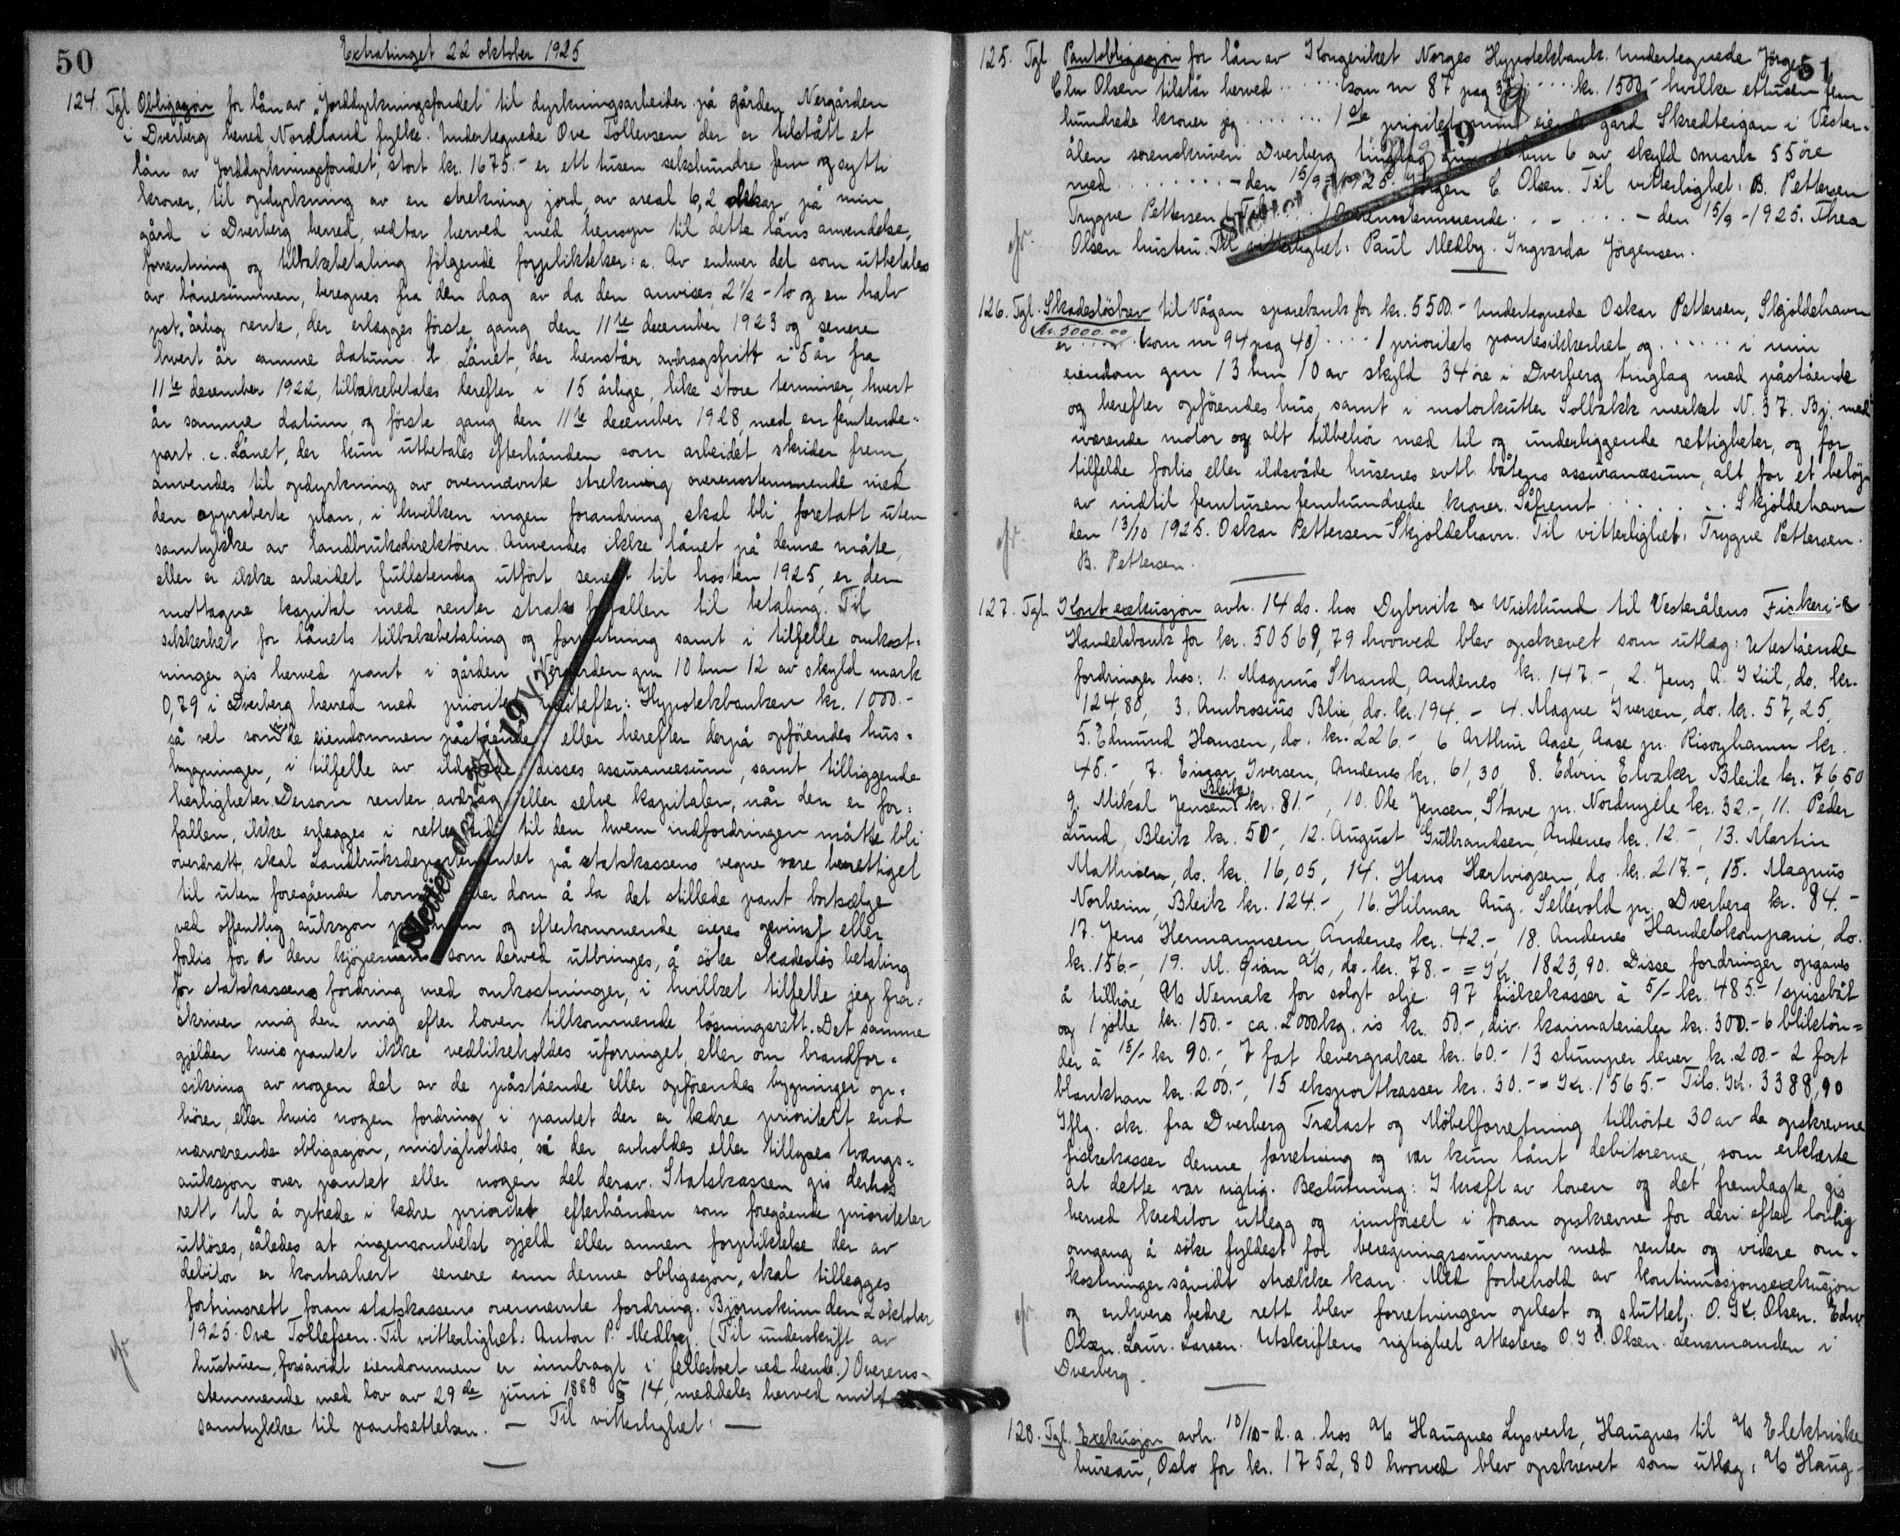 50
Extratinget 22 oktober 1925
124. Tgl Obligasjon for lån av "Jorddyrkningsfondet" til dyrkningsarbeider på gården Nergården
i Dverberg herred, Nordland fylke. Undertegnede Ove Tollevsen der er tilstått et
lån av Jorddyrkningsfondet, stort kr. 1675.- er ett tusen sekshundre fem og sytti
kroner, til opdyrkning av en strekning jord, av areal 6,2 dekar, på min
gård i Dverberg herred, vedtar herved med hensyn til dette låns anvendelse,
forrentning og tilbakebetaling følgende forpliktelser: a. Av enhver del som utbetales
av lånesummen, beregnes fra den dag av da den anvises, 2½ - to og en halv
pst. årlig rente, der erlegges første gang den 11te december 1923 og senere
hvert år samme datum. b. Lånet, der henstår avdragsfritt i 5 år fra
11te december 1922, tilbakebetales derefter i 15 årlige, like store terminer, hvert
år samme datum og første gang den 11te december 1928, med en femtende-
part. c. Lånet, der kun utbetales efterhånden som arbeidet skrider frem,
anvendes til opdyrkning av ovennevnte strekning overensstemmende med
den approberte plan, i hvilken ingen forandring skal bli foretatt uten
samtykke av landbruksdirektören. Anvendes ikke lånet på denne måte,
eller er ikke arbeidet fullstendig utfört senest til hösten 1925, er den
mottagne kapital med renter straks forfallen til betaling. Til
sikkerhet for lånets tilbakebetaling og forrentning samt i tilfelle omkost-
ninger gis herved pant i gården Nergården gnr 10 bnr 12 av skyld mark
0,79 i Dverberg herred med prioritet næstefter: Hypotekbanken kr. 1000.-
så vel som de eiendommen påstående eller herefter derpå opförendes hus-
bygninger, i tilfelle av ildsvåde disses assurancesum, samt tilliggende
herligheter. Dersom renter, avdrag eller selve kapitalen, når den er for-
fallen, ikke erlegges i rette tid til den hvem indfordringen måtte bli
overdratt, skal Landbruksdepartementet på statskassens vegne være berettiget
til uten foregående lovmål eller dom å la det stillede pant bortselge
ved offentlig auksjon og efterkommende eieres gevinst eller
forlis for å den kjøpesum som derved utbringes, å söke skadeslös betaling
for statskassens fordring med omkostninger, i hvilket tilfelle jeg fra-
skriver mig den mig efter loven tilkommende lösningsrett. Det samme
gjelder hvis pantet ikke vedlikeholdes uforringet, eller om brandfor-
sikring av nogen del av de påstående eller opförendes bygninger op-
hörer, eller hvis nogen fordring i pantet der er bedre prioritert end
nærværende obligasjon, misligholdes, så der avholdes eller tillyses tvangs-
auksjon over pantet eller nogen del derav. Statskassen gis derhos
rett til å optrede i bedre prioritet efterhånden som foregående prioriteter
utlöses, således at ingensomhelst gjeld eller annen forpliktelse der av
debitor er kontrahert senere enn denne obligasjon, skal tillegges
fortrinsrett foran statskassens ovennevnte fordring. Bjørnskinn den 2 oktober
1925. Ove Tollefsen. Til vitterlighet: Anton P. Medby. (Til underskrift av
hustruen, forsåvidt eiendommen er innbragt i fellesboet ved hende.) Overens-
stemmende med lov av 29de juni 1888 § 14, meddeles herved mitt
samtykke til pantsettelsen. — Til vitterlighet: —
51
125. Tgl Pantobligasjon for lån av Kongeriket Norges Hypotekbank. Undertegnede Jørgen
Elm Olsen tilstår herved ..... kom nr 87 pag ..... kr. 1500.- hvilke ettusen fem
hundrede kroner jeg ....... 1ste prioritet i min eiende gård Skredteigan i Vester-
ålen sorenskriveri Dverberg tinglag gnr 11 bnr 6 av skyld 0 mark 55 öre
med ......... - den 15/9-1925. Jørgen E. Olsen. Til vitterlighet: B. Pettersen
Trygve Pettersen. Overensstemmende .. - ..... - den 15/9-1925. Thea
Olsen hustru. Til vitterlighet: Paul Medby. Ingvarda Jørgensen.
126. Tgl. Skadeslösbrev til Vågan sparebank for kr. 5500.- Undertegnede Oskar Pettersen, Skjoldehavn
kr. 5000.00
er ..... (kom nr 94 pag 40) .... 1 prioritets pantesikkerhet og ...... i min
eiendom gnr 13 bnr 10 av skyld 34 öre i Dverberg tinglag med påstående
og herefter opförendes hus, samt i motorkutter Solbakk merket N. 37. Bj. med
iværende motor og alt tilbehör med til og underliggende rettigheter, og for
tilfelde forlis eller ildsvåde husenes evtl. båtens assurancesum, alt for et belöp
av indtil femtusen femhundrede kroner. Såfremt ........ Skjoldehavn
den 13/10 1925. Oskar Pettersen Skjoldehavn. Til vitterlighet: Trygve Pettersen.
B. Pettersen.
127. Tgl. Kort exekusjon avh. 14 ds. hos Dybvik & Wicklund til Vesterålens Fiskeri- &
Handelsbank for kr. 50569,79 hvorved blev opskrevet som utlæg: Utestående
fordringer hos: 1. Magnus Strand, Andenes kr. 147.-, 2. Jens A. Kiil, do. kr.
124,80, 3. Ambrosius Blix, do. kr. 194.- 4. Magne Iversen, do. kr. 57,25,
5. Edmund Hansen, do. kr. 226.-, 6 Arthur Aase, Aase pr. Risøyhamn kr.
45.-, 7. Einar Iversen, Andenes kr. 61,30, 8. Edvin Elvaker Bleik kr. 76,50
9. Mikal Jensen Bleik kr. 81.-, 10. Ole Jensen, Stave pr. Nordmyele kr. 32.-, 11. Peder
Lund, Bleik kr. 50-, 12. August Gulbrandsen, Andenes kr. 12.-, 13. Martin
Mathisen, do. kr. 16,05, 14. Hans Hartvigsen, do. kr. 217.-, 15. Magnus
Norheim, Bleik kr. 124.-, 16. Hilmar Aug. Sellevold pr. Dverberg kr. 84.-
17. Jens Hermannsen, Andenes kr. 42.-, 18. Andenes Handelskompani, do.
kr. 156.-, 19. M. Øian A/s, do. kr. 78.- = Kr. 1823,90. Disse fordringer opgaves
å tilhöre A/s Nemak for solgt olje. 97 fiskekasser à 5/- kr. 485.- 1 spissbåt
og 1 jolle kr. 150.- ca. 2000 kg. is kr. 50.-, div. kaimaterialer kr. 300.- 6 bliktön-
der à 15/- kr 90.-, 7 fat levergrakse kr. 60.- 13 stumper lever kr. 200.- 2 fat
blanktran kr. 200.-, 15 eksportkasser kr. 30.- = Kr. 1565.- Tils. Kr. 3388,90
Iflg. skr. fra Dverberg Trælast og Möbelforretning tilhörte 30 av de opskrevne
fiskekasser denne forretning og var kun lånt debitorerne, som erklærte
at dette var rigtig. Beslutning: I kraft av loven og det fremlagte gis
herved kreditor utlegg og innförsel i foran opskrevne for deri efter lovlig
omgang å söke fyldest for beregningssummen med renter og videre om-
kostninger såvidt strække kan. Med forbehold av kontinuasjonsexekusjon
og enhvers bedre rett blev forretningen oplest og sluttet. O. K. Olsen. Edv
Olsen. Laur. Larsen. Utskriftens rigtighet attesteres O. K. Olsen. Lensmanden i
Dverberg.
128. Tgl. Exekusjon avh. 10/10- d.a. hos A/s Haugnes Lysverk, Haugnes til A/s Elektriske
bureau, Oslo for kr. 1752,80 hvorved blev opskrevet som utlæg: A/s Haug-